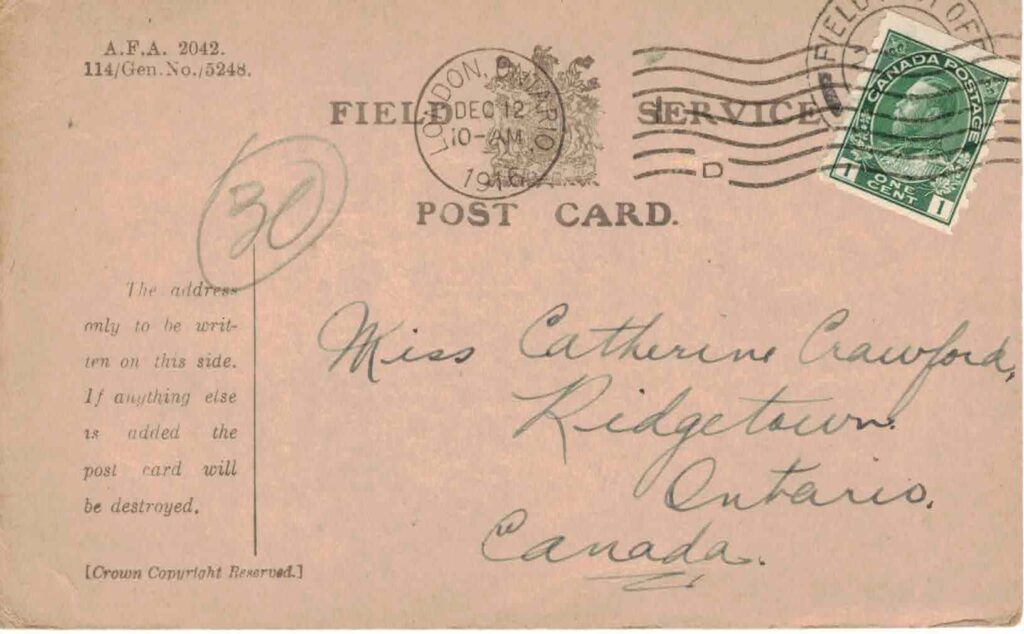 A.F.A. 2042.
114/Gen.No./5248.
FIELD SERVICE
POST CARD.
LONDON, ONTARIO
DEC 12
10-AM
1916
D
FIELD
CANADA POSTAGE
1 ONE CENT 1
30
The address
only to be writ-
ten on this side.
If anything else
is added the
post card will
be destroyed.
[Crown Copyright Reserved.]
Miss Catherine Crawford,
Ridgetown.
Ontario.
Canada.